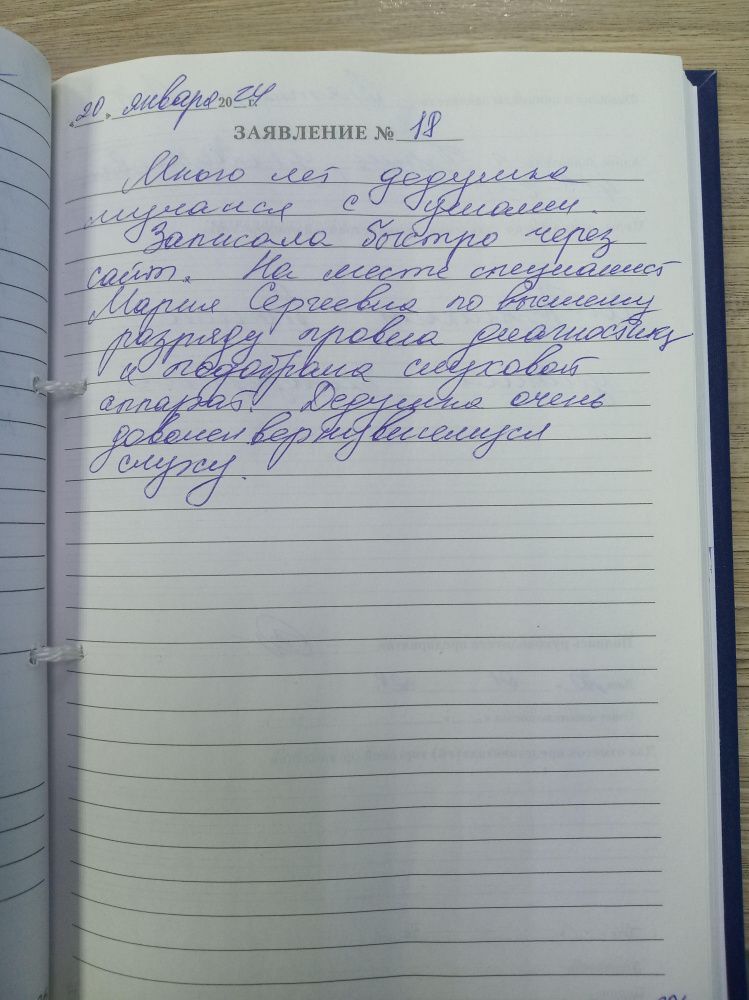 «20» января 2024 г.
ЗАЯВЛЕНИЕ № 18
Много лет дедушка
мучался с ушами.
Записала быстро через
сайт. На месте специалист
Мария Сергеевна по высшему
разряду провела диагностику
и подобрала слуховой
аппарат. Дедушка очень
доволен вернувшемуся
слуху.